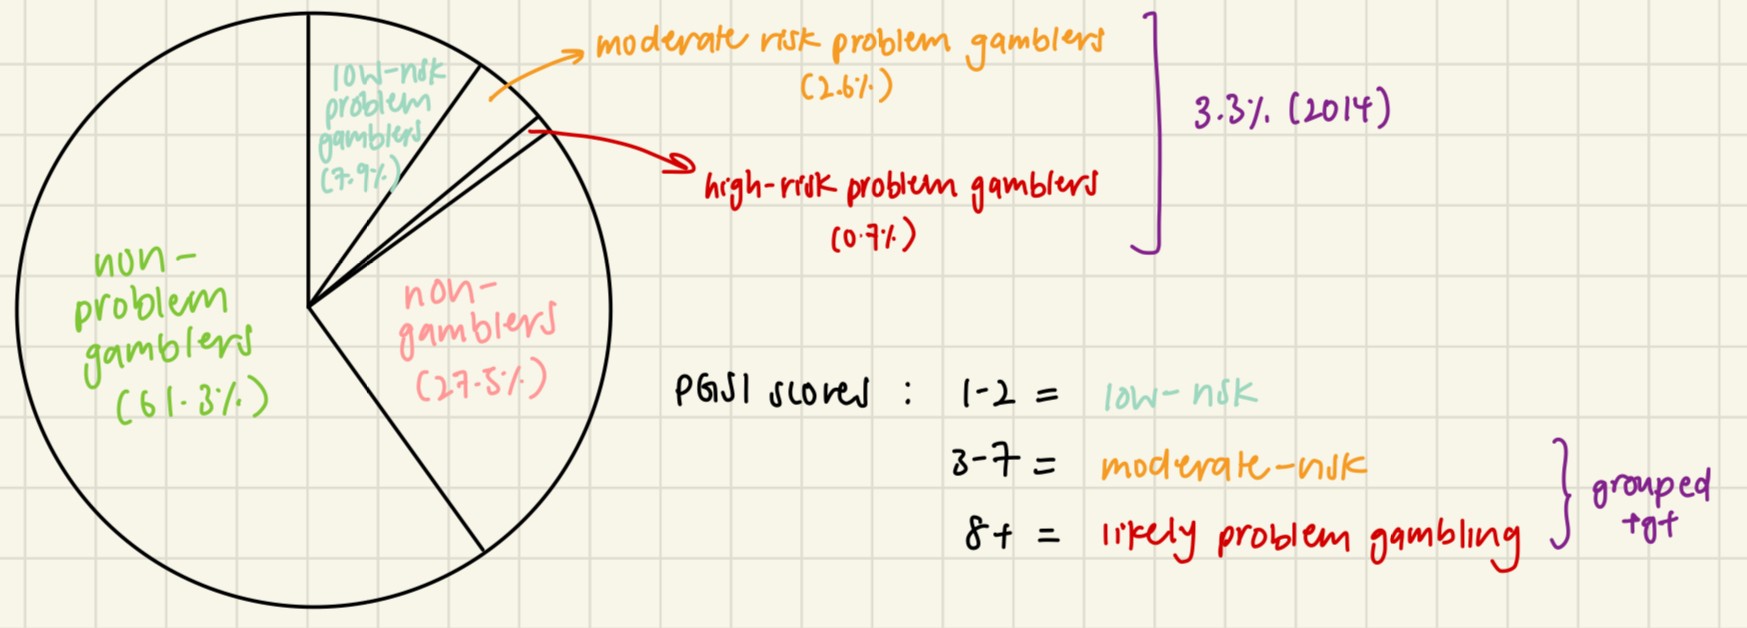 low-risk
problem
gamblers
(7.9%)
moderate risk problem gamblers
(2.6%)
3.3% (2014)
high-risk problem gamblers
(0.7%)
non-
problem
gamblers
(61.3%)
non-
gamblers
(27.5%)
PGSI scores : 1-2 = low-risk
3-7 = moderate-risk
8+ = likely problem gambling
grouped
tgt